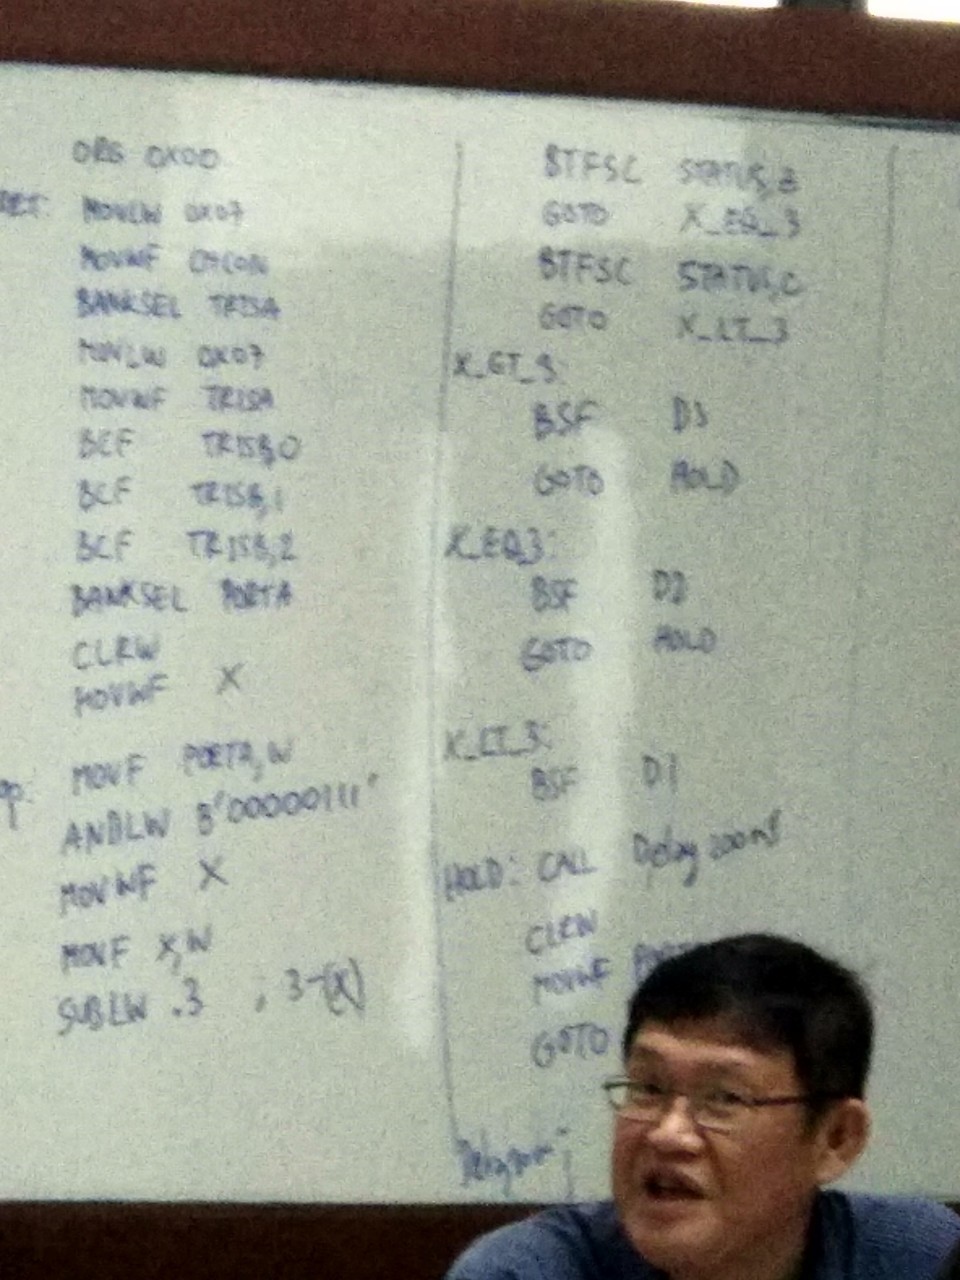 ORG 0X00
MOVLW 0X07
MOVWF CMCON
BANKSEL TRISA
MOVLW 0X07
MOVWF TRISA
BCF TRISB,0
BCF TRISB,1
BCF TRISB,2
BANKSEL PORTA
CLRW
MOVWF X
MOVF PORTA,W
ANDLW B'00000111'
MOVWF X
MOVF X,W
SUBLW .3 ; 3-(X)
BTFSC STATUS,Z
GOTO X_EQ_3
BTFSC STATUS,C
GOTO X_LT_3
X_GT_3:
BSF D3
GOTO HOLD
X_EQ_3:
BSF D2
GOTO HOLD
X_LT_3:
BSF D1
HOLD: CALL Delay200ms
CLRW
MOVWF
GOTO